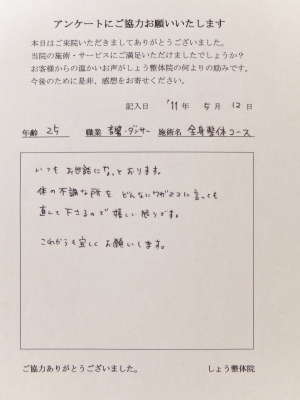 アンケートにご協力お願いいたします
本日はご来院いただきましてありがとうございました。
当院の施術・サービスにご満足いただけましたでしょうか？
お客様からの温かいお声がしょう整体院の何よりの励みです。
今後のために是非、感想をお寄せください。
記入日 '11 年 5 月 12 日
年齢 25 職業 音響・ダンサー 施術名 全身整体コース
いつも お世話になっております。
体の不調な所を どんなにワガママに言っても
直して下さるので嬉しい限りです。
これからも宜しくお願いします。
ご協力ありがとうございました。 しょう整体院